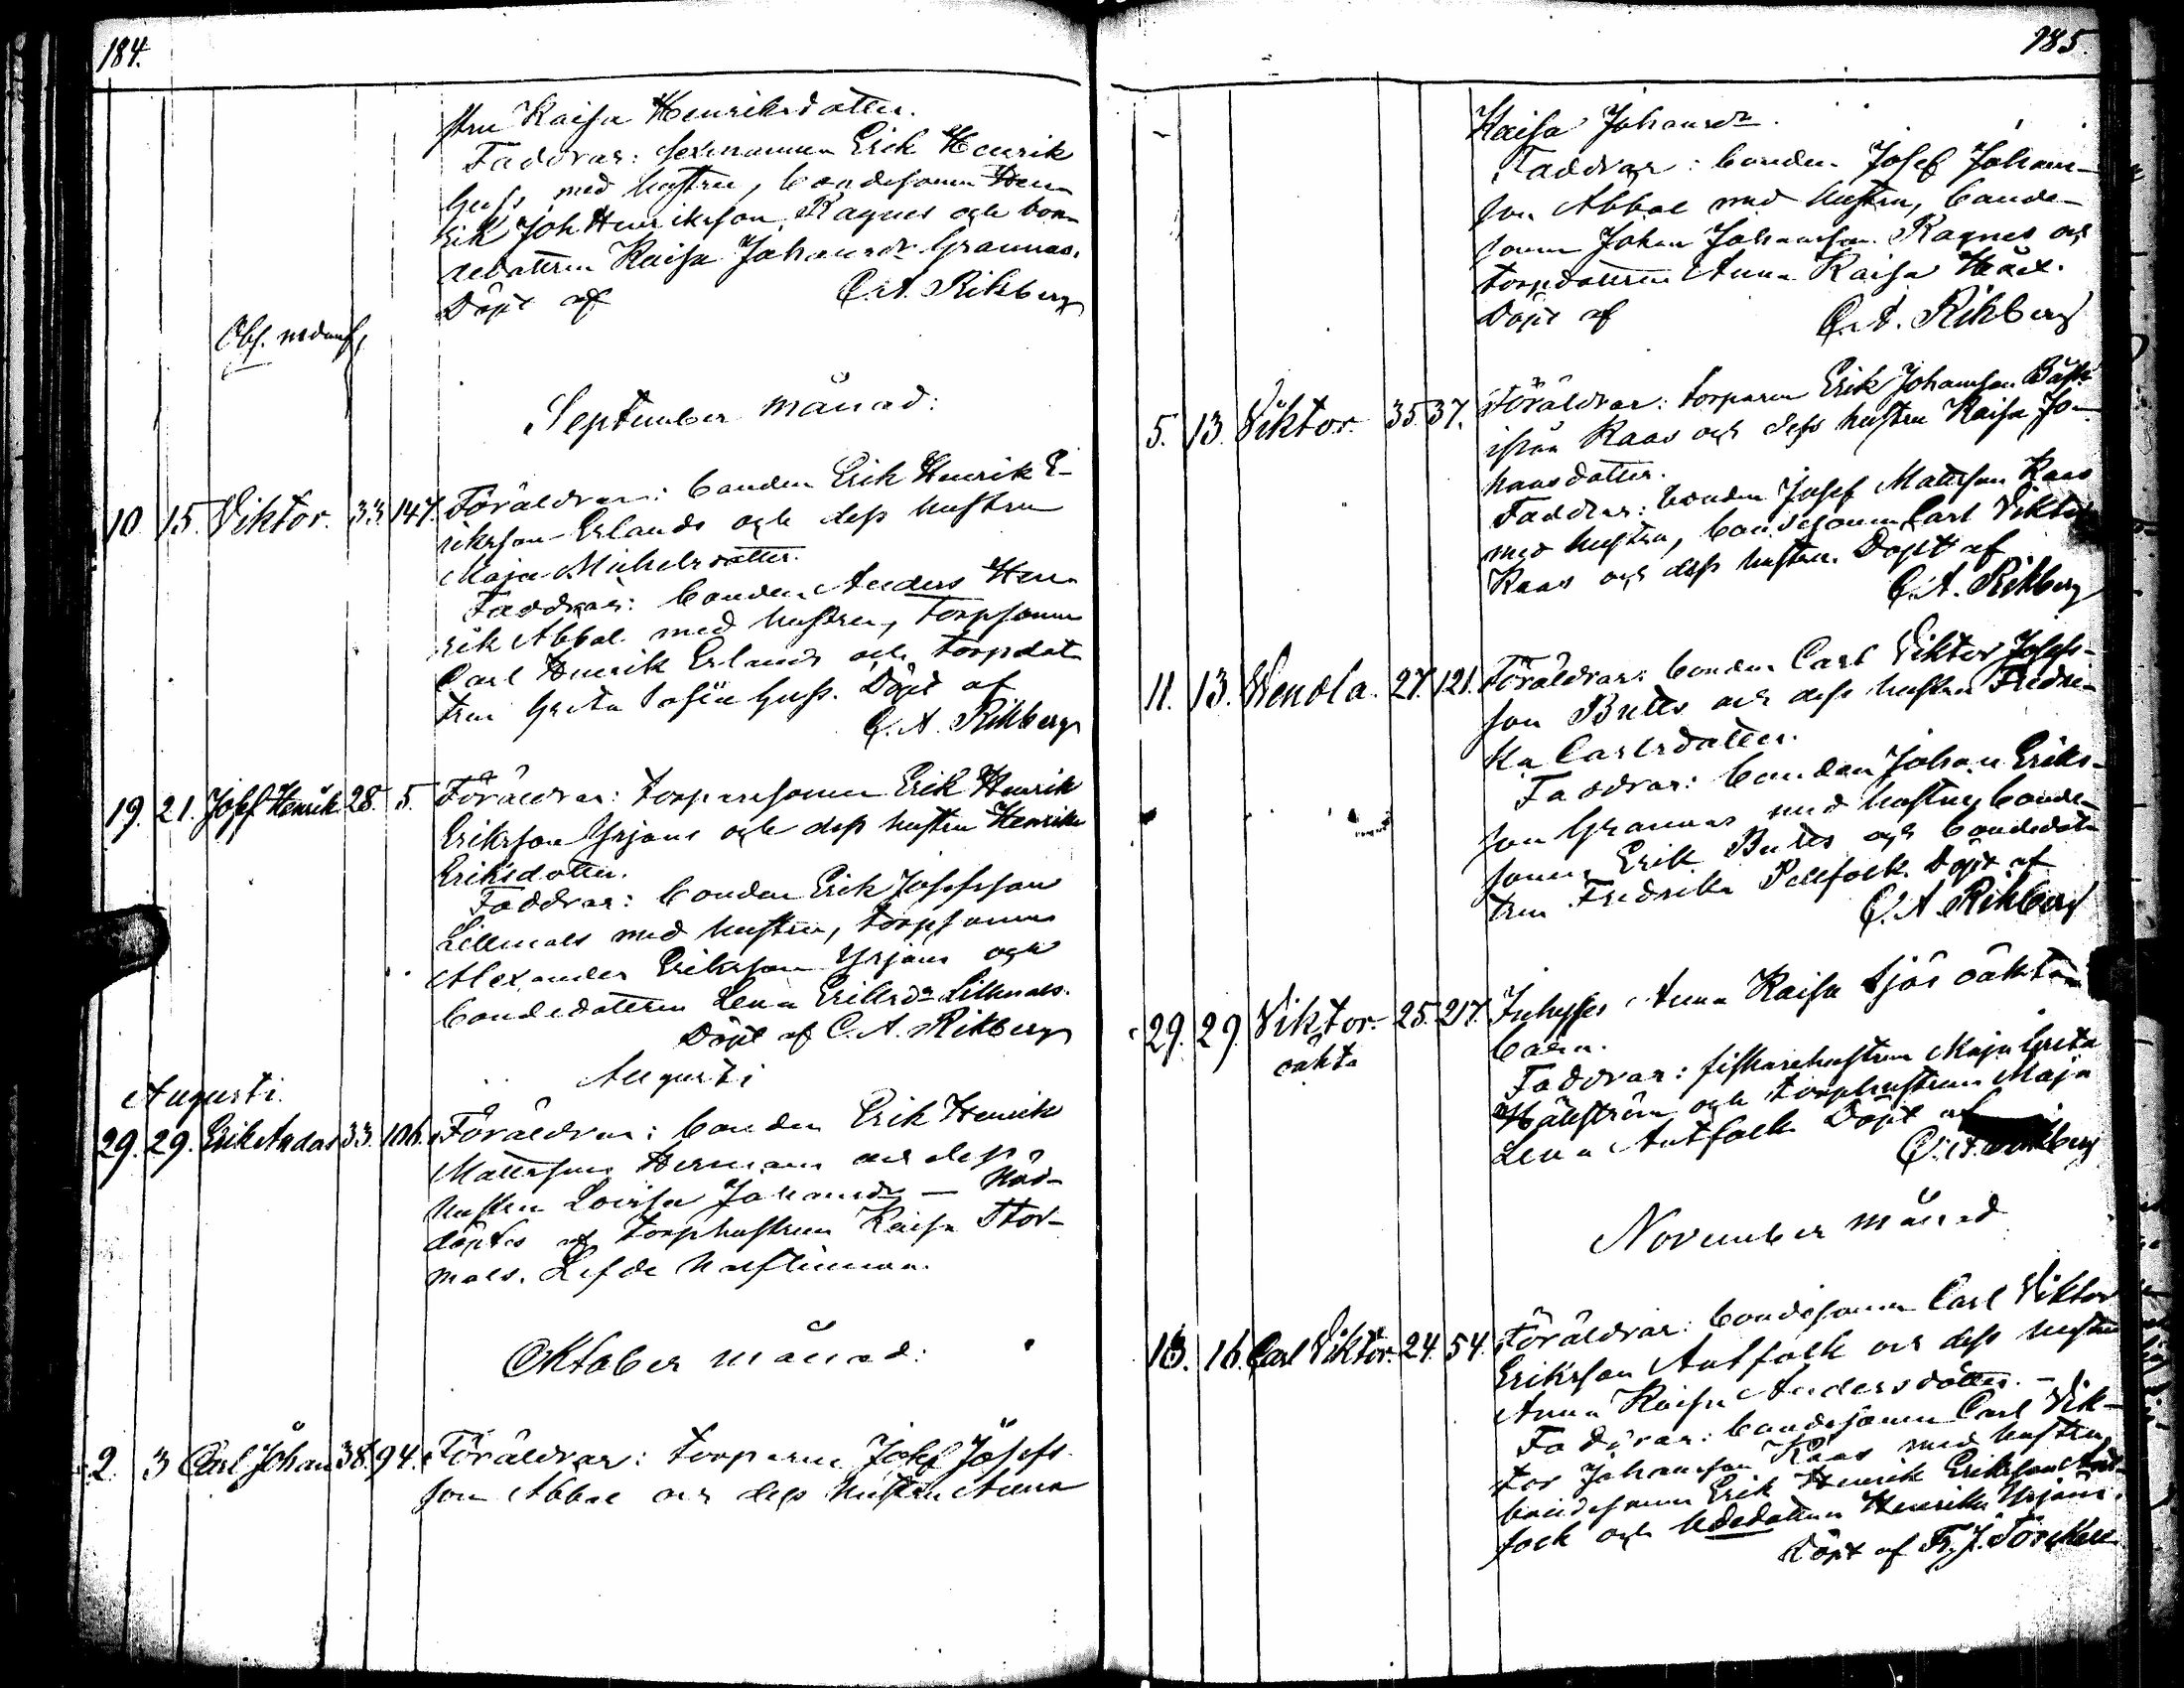 184.
stru Kaisa Henriksdotter.
Faddrar: sexmannen Erik Henrik
Guss med hustru, bondesonen Hen-
rik Joh Henrikson Ragnes och bon-
dedottren Kaisa Johansdr Grannas.
Döpt af C. A. Rikberg
Obs. nedanf.
September månad:
10. 15. Viktor. 33. 147. Föräldrar: bonden Erik Henrik E-
rikson Erlands och dess hustru
Maja Michelsdotter.
Faddrar: bonden Anders Hen-
rik Abbal med hustru, torpsonen
Carl Henrik Erlands och torpdot-
tren Greta Sofia Guss. Döpt af
C. A. Rikberg
19. 21. Josef Henrik. 28. 5. Föräldrar: torparesonen Erik Henrik
Erikson Yrjans och dess hustru Henrika
Eriksdotter.
Faddrar: bonden Erik Josefsson
Lillmals med hustru, torpsonen
Alexander Erikson Yrjans och
bondedottren Lena Eriksdr Lillmals.
Döpt af C. A. Rikberg
Augusti
Augusti.
29. 29. Erik Andas 33. 106. Föräldrar: bonden Erik Henrik
Mattsson Hermans och dess
hustru Lovisa Johansdr — Nöd-
döptes af torphustrun Kaisa Stor-
mals. Lefde
Oktober månad:
2. 3 Carl Johan 38. 94. Föräldrar: torparen Josef Josefs-
son Abbal och dess hustru Anna
185.
Kaisa Johansdr.
Faddrar: bonden Josef Johans-
son Abbal med hustru, bonde-
sonen Johan Johansson Ragnes och
torpdottren Anna Kaisa
Döpt af C. A. Rikberg
5. 13. Viktor. 35. 37. Föräldrar: torparen Erik Johansson
ifrån Kaas och dess hustru Kaisa Jo-
hansdotter.
Faddrar: bonden Josef Mattsson Kaas
med hustru, bondesonen Carl Viktor
Kaas och dess hustru. Döpt af
C. A. Rikberg
11. 13. Wendla. 27. 121. Föräldrar: bonden Carl Viktor Josefs-
son Butts och dess hustru Fredri-
ka Carlsdotter.
Faddrar: bonden Johan Eriks-
son Grannas med hustru, bonde-
sonen Erik Butts och bondedot-
tren Fredrika Pellfolk. Döpt af
C. A. Rikberg
29. 29. Viktor. 25. 217. Inhyses Anna Kaisa Sjös oäkta
oäkta
barn.
Faddrar: fiskarehustrun Maja Greta
Hällström och torphustrun Maja
Lena Antfolk Döpt af
C. A. Rikberg
November månad
13. 16. Carl Viktor. 24. 54. Föräldrar: bondesonen Carl Viktor
Erikson Antfolk och dess hustru
Anna Kaisa Andersdotter. —
Faddrar: bondesonen Carl Vik-
tor Johansson Kaas med hustru,
bondesonen Erik Henrik Erikson Ant-
folk och bdedottren Henrika Yrjans.
Döpt af Fr. J.